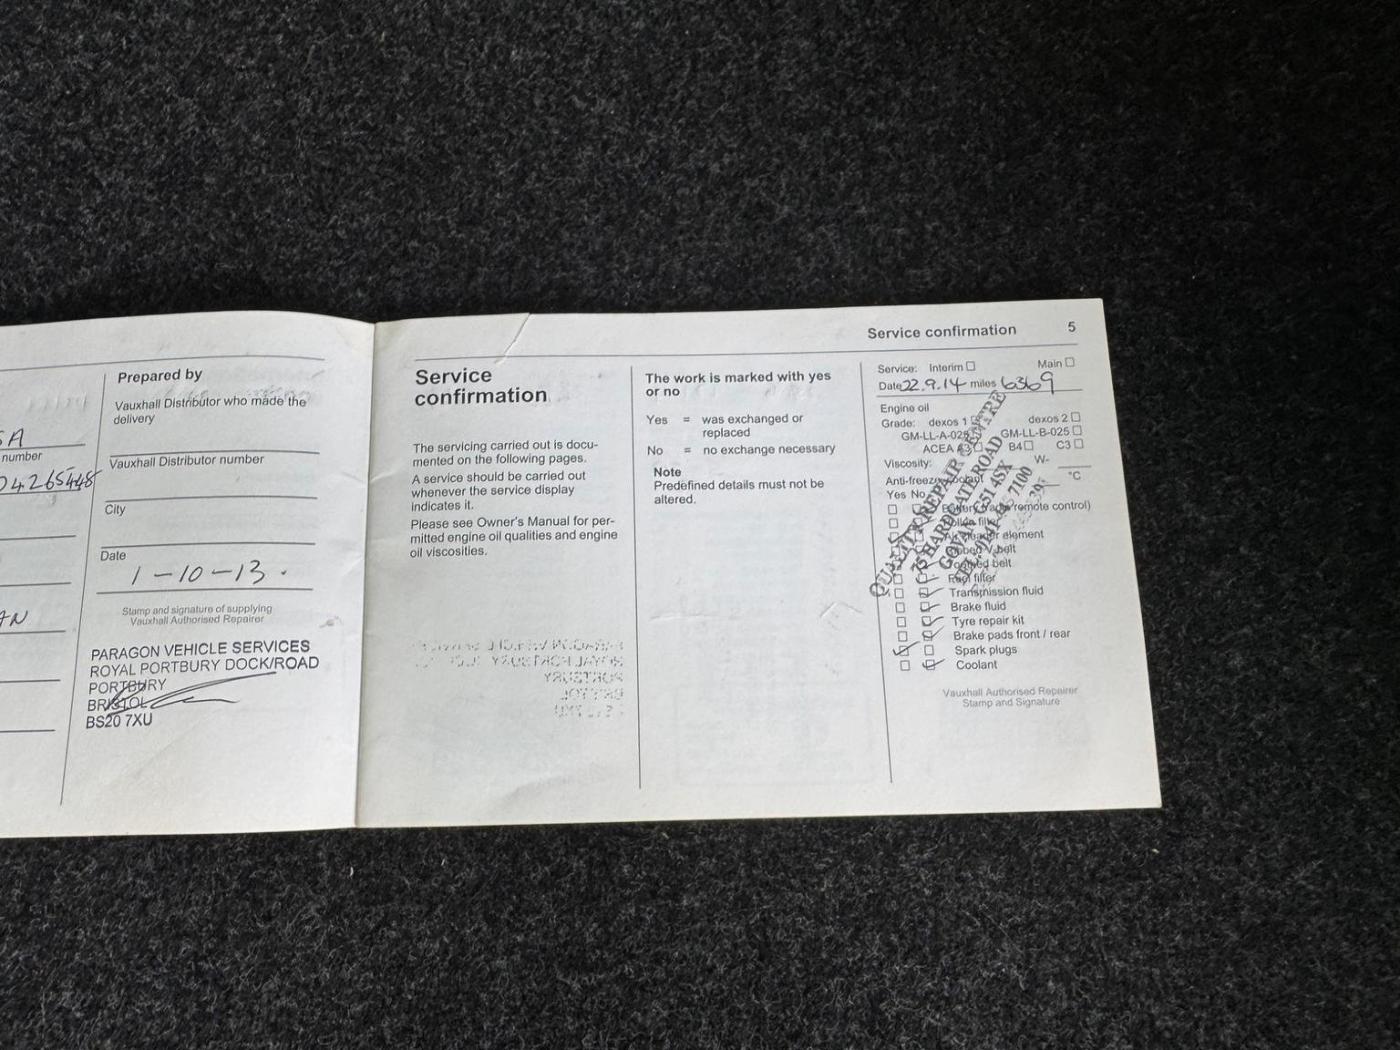 SA
number
04265448
AN
Prepared by
Vauxhall Distributor who made the
delivery
Vauxhall Distributor number
City
Date
1-10-13.
Stamp and signature of supplying
Vauxhall Authorised Repairer
PARAGON VEHICLE SERVICES
ROYAL PORTBURY DOCK/ROAD
PORTBURY
BRISTOL
BS20 7XU
Service confirmation 5
Service
confirmation
The servicing carried out is docu-
mented on the following pages.
A service should be carried out
whenever the service display
indicates it.
Please see Owner's Manual for per-
mitted engine oil qualities and engine
oil viscosities.
The work is marked with yes
or no
Yes = was exchanged or
replaced
No = no exchange necessary
Note
Predefined details must not be
altered.
Service: Interim Main
Date 22.9.14 miles 6369
Engine oil
Grade: dexos 1 dexos 2
GM-LL-A-025 GM-LL-B-025
ACEA A3 B4 C3
Viscosity: W-
Anti-freeze/coolant °C
Yes No
remote control)
element
V-belt
belt
Fuel filter
Transmission fluid
Brake fluid
Tyre repair kit
Brake pads front / rear
Spark plugs
Coolant
QUALITY REPAIR CENTRE
75 HARDGATE ROAD
GOVAN G51 4SX
7100
Vauxhall Authorised Repairer
Stamp and Signature